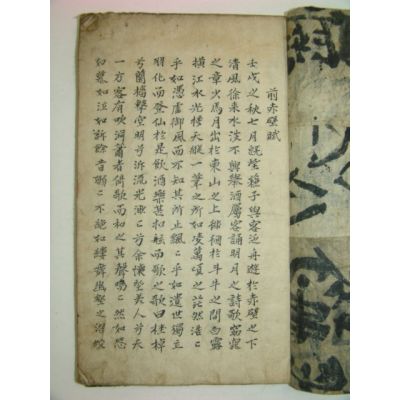 前赤壁賦
壬戌之秋七月旣望蘇子與客泛舟遊於赤壁之下
清風徐來水波不興擧酒屬客誦明月之詩歌窈窕
之章少焉月出於東山之上徘徊於斗牛之間白露
橫江水光接天縱一葦之所如凌萬頃之茫然浩〻
乎如憑虛御風而不知其所止飄〻乎如遺世獨立
羽化而登仙於是飮酒樂甚扣舷而歌之歌曰桂棹
兮蘭槳擊空明兮泝流光渺〻兮余懷望美人兮天
一方客有吹洞簫者倚歌而和之其聲嗚〻然如怨
如慕如泣如訴餘音嫋〻不絶如縷舞幽壑之潛蛟